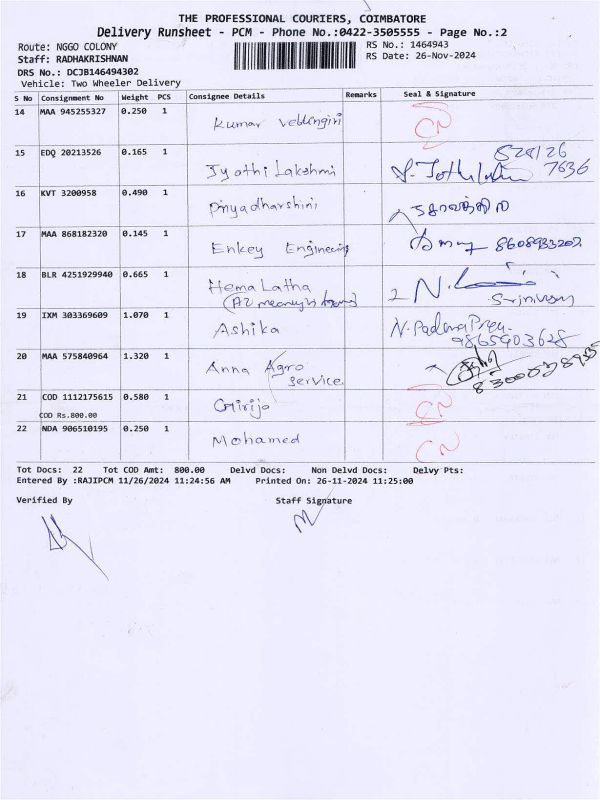 THE PROFESSIONAL COURIERS, COIMBATORE
Delivery Runsheet - PCM - Phone No.:0422-3505555 - Page No.:2
Route: NGGO COLONY
RS No.: 1464943
Staff: RADHAKRISHNAN
RS Date: 26-Nov-2024
DRS No.: DCJB146494302
Vehicle: Two Wheeler Delivery
S No Consignment No Weight PCS Consignee Details Remarks Seal & Signature
14 MAA 945255327 0.250 1 Kumar Vellingiri CN
15 EDQ 20213526 0.165 1 Jyothi Lakshmi 7636
16 KVT 3200958 0.490 1 Priyadharshini
17 MAA 868182320 0.145 1 Enkey Engineering
18 BLR 4251929940 0.665 1 Hema Latha Srinivasan
19 IXM 303369609 1.070 1 Ashika N. Padma Priya
9865903628
20 MAA 575840964 1.320 1 Anna Agro
Service
21 COD 1112175615 0.580 1 Girija CN
COD Rs.800.00
22 NDA 906510195 0.250 1 Mohamed CN
Tot Docs: 22 Tot COD Amt: 800.00 Delvd Docs: Non Delvd Docs: Delvy Pts:
Entered By :RAJIPCM 11/26/2024 11:24:56 AM Printed On: 26-11-2024 11:25:00
Verified By Staff Signature